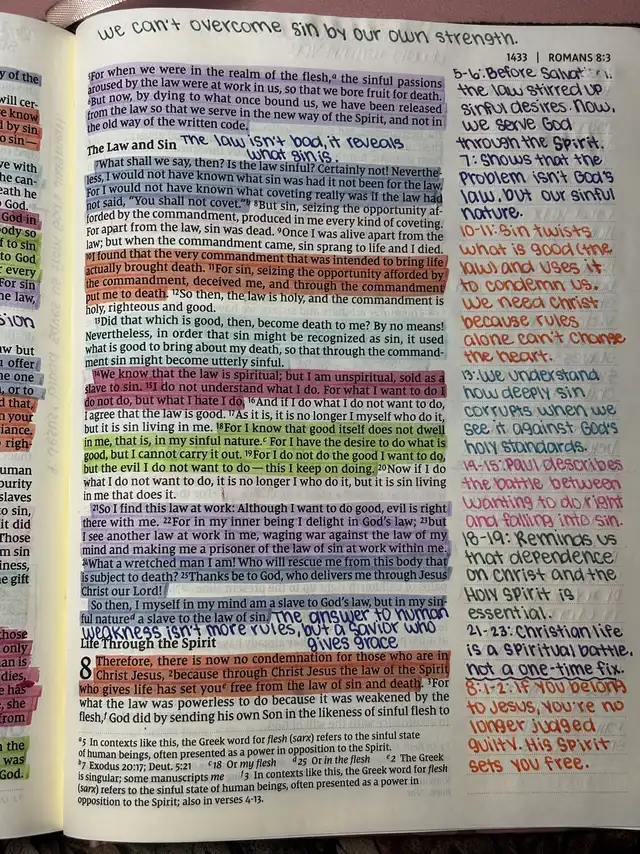 we can't overcome sin by our own strength.
1433 | ROMANS 8:3
⁵For when we were in the realm of the flesh,ᵃ the sinful passions
aroused by the law were at work in us, so that we bore fruit for death.
⁶But now, by dying to what once bound us, we have been released
from the law so that we serve in the new way of the Spirit, and not in
the old way of the written code.
The Law and Sin The law isn't bad, it reveals
what sin is.
⁷What shall we say, then? Is the law sinful? Certainly not! Neverthe-
less, I would not have known what sin was had it not been for the law.
For I would not have known what coveting really was if the law had
not said, "You shall not covet."ᵇ ⁸But sin, seizing the opportunity af-
forded by the commandment, produced in me every kind of coveting.
For apart from the law, sin was dead. ⁹Once I was alive apart from the
law; but when the commandment came, sin sprang to life and I died.
¹⁰I found that the very commandment that was intended to bring life
actually brought death. ¹¹For sin, seizing the opportunity afforded by
the commandment, deceived me, and through the commandment
put me to death. ¹²So then, the law is holy, and the commandment is
holy, righteous and good.
¹³Did that which is good, then, become death to me? By no means!
Nevertheless, in order that sin might be recognized as sin, it used
what is good to bring about my death, so that through the command-
ment sin might become utterly sinful.
¹⁴We know that the law is spiritual; but I am unspiritual, sold as a
slave to sin. ¹⁵I do not understand what I do. For what I want to do I
do not do, but what I hate I do. ¹⁶And if I do what I do not want to do,
I agree that the law is good. ¹⁷As it is, it is no longer I myself who do it,
but it is sin living in me. ¹⁸For I know that good itself does not dwell
in me, that is, in my sinful nature.ᶜ For I have the desire to do what is
good, but I cannot carry it out. ¹⁹For I do not do the good I want to do,
but the evil I do not want to do—this I keep on doing. ²⁰Now if I do
what I do not want to do, it is no longer I who do it, but it is sin living
in me that does it.
²¹So I find this law at work: Although I want to do good, evil is right
there with me. ²²For in my inner being I delight in God's law; ²³but
I see another law at work in me, waging war against the law of my
mind and making me a prisoner of the law of sin at work within me.
²⁴What a wretched man I am! Who will rescue me from this body that
is subject to death? ²⁵Thanks be to God, who delivers me through Jesus
Christ our Lord!
So then, I myself in my mind am a slave to God's law, but in my sin-
ful natureᵈ a slave to the law of sin. The answer to human
weakness isn't more rules, but a savior who
gives grace
Life Through the Spirit
8 Therefore, there is now no condemnation for those who are in
Christ Jesus, ²because through Christ Jesus the law of the Spirit
who gives life has set youᵉ free from the law of sin and death. ³For
what the law was powerless to do because it was weakened by the
flesh,ᶠ God did by sending his own Son in the likeness of sinful flesh to
ᵃ5 In contexts like this, the Greek word for flesh (sarx) refers to the sinful state
of human beings, often presented as a power in opposition to the Spirit.
ᵇ7 Exodus 20:17; Deut. 5:21 ᶜ18 Or my flesh ᵈ25 Or in the flesh ᵉ2 The Greek
is singular; some manuscripts me ᶠ3 In contexts like this, the Greek word for flesh
(sarx) refers to the sinful state of human beings, often presented as a power in
opposition to the Spirit; also in verses 4-13.
5-6: Before
the law stirred up
sinful desires. Now,
we serve God
through the Spirit.
7: Shows that the
problem isn't God's
law, but our sinful
nature.
10-11: Sin twists
what is good (the
law) and uses it
to condemn us.
We need Christ
because rules
alone can't change
the heart.
13: We understand
how deeply sin
corrupts when we
see it against God's
holy standards.
14-15: Paul describes
the battle between
wanting to do right
and falling into sin.
18-19: Reminds us
that dependence
on Christ and the
Holy Spirit is
essential.
21-23: Christian life
is a spiritual battle,
not a one-time fix.
8:1-2: If you belong
to Jesus, you're no
longer judged
guilty. His Spirit
sets you free.